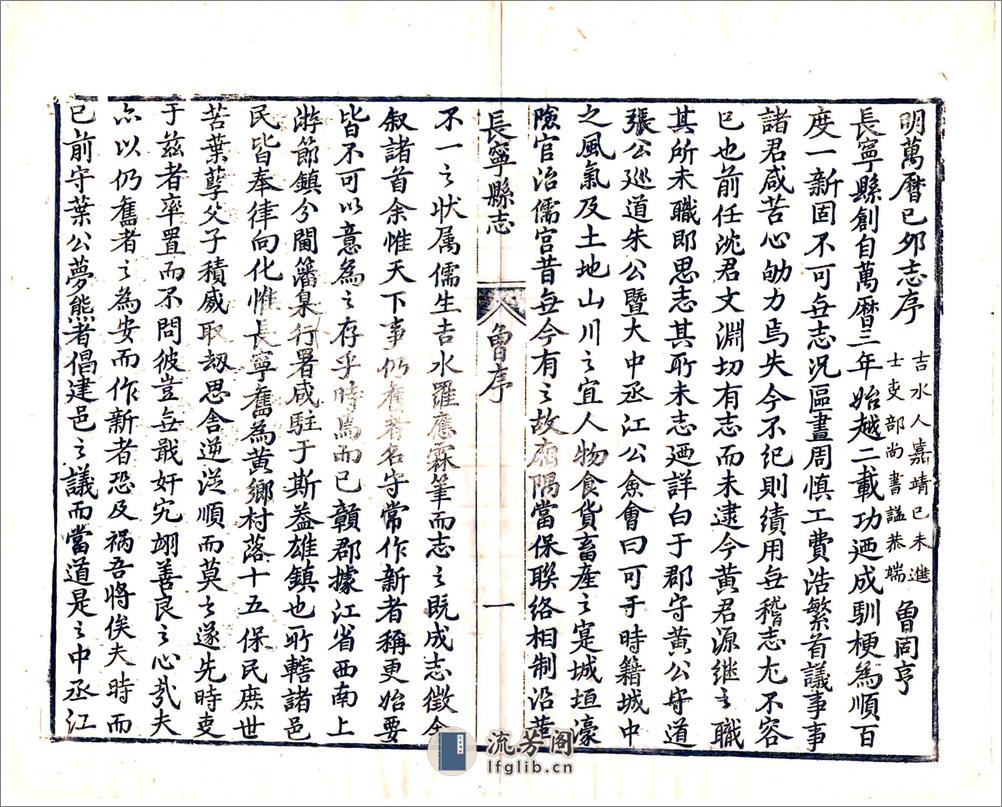 明萬曆己夘志序
吉水人嘉靖己未進
士吏部尚書諡恭端
曾同亨
長寧縣創自萬曆三年始越二載功迺成馴梗為順百
度一新固不可無志況區畫周慎工費浩繁首議事事
諸君咸苦心劬力焉失今不纪則績用無稽志尤不容
已也前任沈君文淵切有志而未逮今黄君源继之職
其所未職即思志其所未志迺詳白于郡守黄公守道
張公廵道朱公暨大中丞江公僉會曰可于時籍城中
之風氣及土地山川之宜人物食貨畜産之寔城垣濠
隍官治儒宫昔無今有之故廂隅當保聯络相制沿革
長寧縣志
曾序
一
不一之状属儒生吉水羅應霖筆而志之既成志徵余
叙諸首余惟天下事仍舊者名守常作新者稱更始要
皆不可以意為之存乎時焉而已贛郡據江省西南上
游節鎮分閫籓臬行署咸駐于斯葢雄鎮也所轄諸邑
民皆奉律向化惟長寧舊為黄鄉村落十五保民庶世
苦葉孽父子積威取刼思舍逆從順而莫之遂先時吏
于兹者率置而不問彼豈無戢奸宄翊善良之心㢤夫
亦以仍舊者之為安而作新者恐及祸吾將俟夫時而
已前守葉公夢熊者倡建邑之議而當道是之中丞江
流芳阁
lfglib.cn